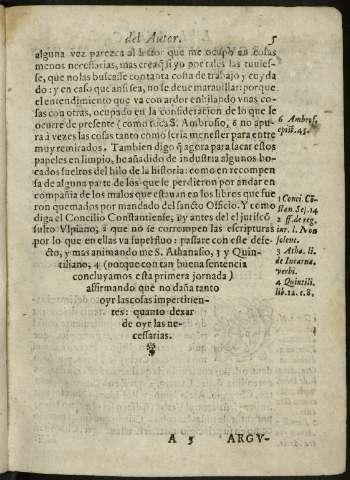 del Autor. 5
alguna vez parezca al letor que me ocupo en cosas
menos necessarias, mas crea q̃ si yo por tales las tuuies-
se, que no las buscasse con tanta costa de trabajo y cuyda
do: y en caso que ansi sea, no se deue marauillar: porque
el entendimiento que va con ardor enhilando vnas co-
sas con otras, ocupado en la consideracion de lo que le
ocurre de presente (como dize S. Ambrosio, 6 no apu-
ra a vezes las cosas tanto como seria menester para entre
muy remirados. Tambien digo q̃ agora para sacar estos
papeles en limpio, he añadido de industria algunos bo-
cados sueltos del hilo de la historia: como en recompen
sa de alguna parte de los que le perdieron por andar en
compañia de los malos que estauan en los libres que fue
ron quemados por mandado del sancto Officio. Y como
diga el Concilio Constantiense, 1 y antes del el juriscõ
sulto Vlpiano, 2 que no se corrompen las escripturas
por lo que en ellas va superfluo: passare con este defe-
cto, y mas animando me S. Athanasio, 3 y Quin-
tiliano, 4 (porque con tan buena sentencia
concluyamos esta primera jornada)
affirmando que no daña tanto
oyr las cosas impertinen-
tes: quanto dexar
de oyr las ne-
cessarias.
6 Ambros.
epist. 45.
1 Conci. Cõ
stan. Ses. 14
2 ff. de reg.
iur. l. Non
solent.
3 Atha. li.
de Incarna.
verbi.
4 Quintili.
lib. 12. c. 8.
A 5 ARGV-